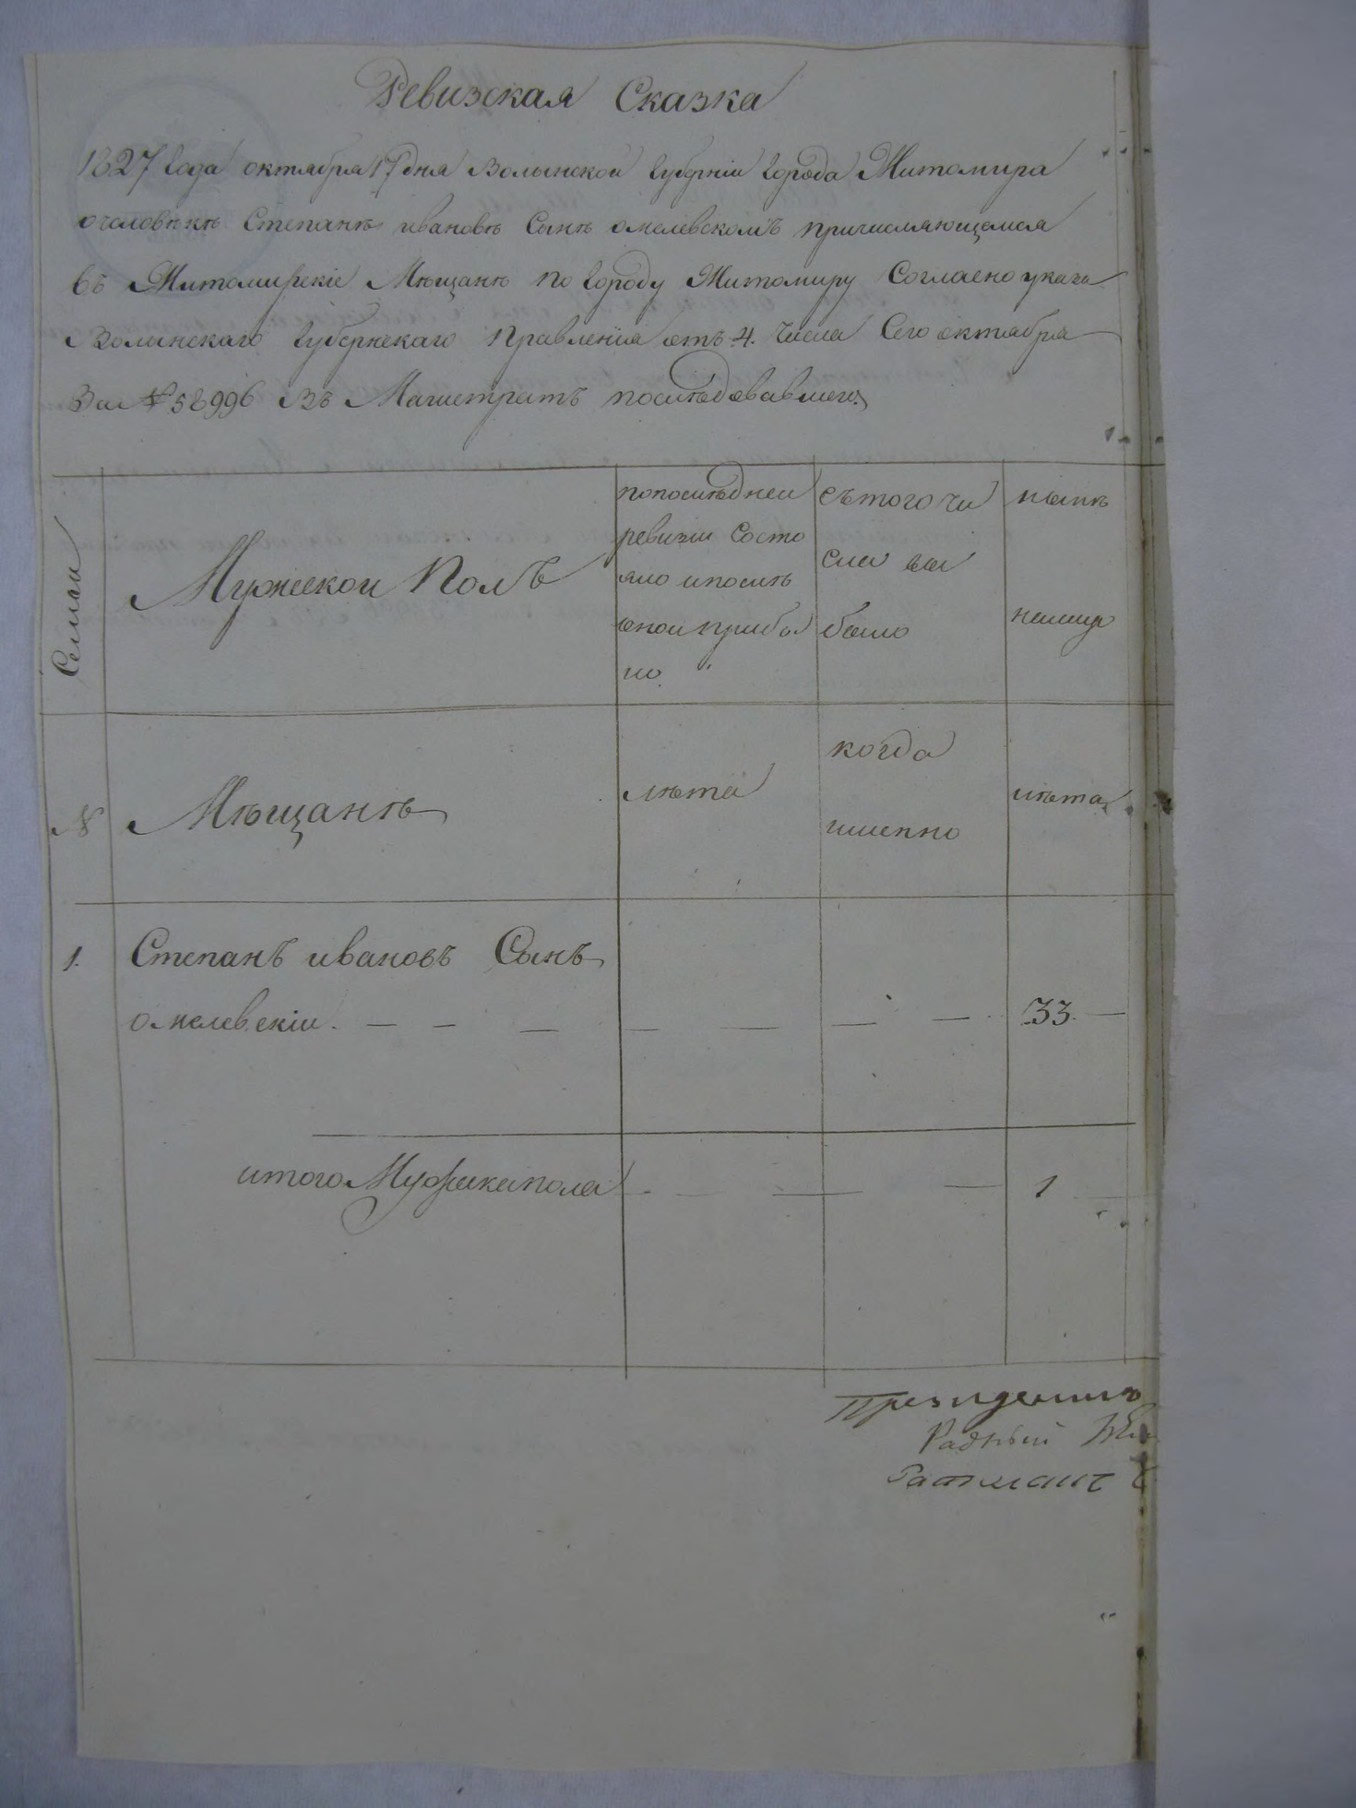 Ревизская Сказка
1827 года октября 17 дня Волынской губерніи города Житомира
о человѣкѣ Степанѣ ивановѣ Сынѣ омелевскомъ причисляющемся
въ Житомирскіе Мѣщанѣ по городу Житомиру Согласно указа
Волынскаго губернскаго Правленія отъ 4. Числа Сего октября
За № 58996 Въ Магистратъ послѣдовавшего.
Семьи
Мужескои Полъ
попослѣднеи
ревизіи Состо
яло ипослѣ
онои прибы
ло.
Сътого чи
сла вы
было
нынѣ
налицо
№
Мѣщанѣ
лѣта
когда
имянно
лѣта
1.
Степанъ ивановъ Сынъ
омелевскіи. — — — — — — — 33. —
итого Мужеска пола — — — — 1
Президентъ
Радный
Ратманъ